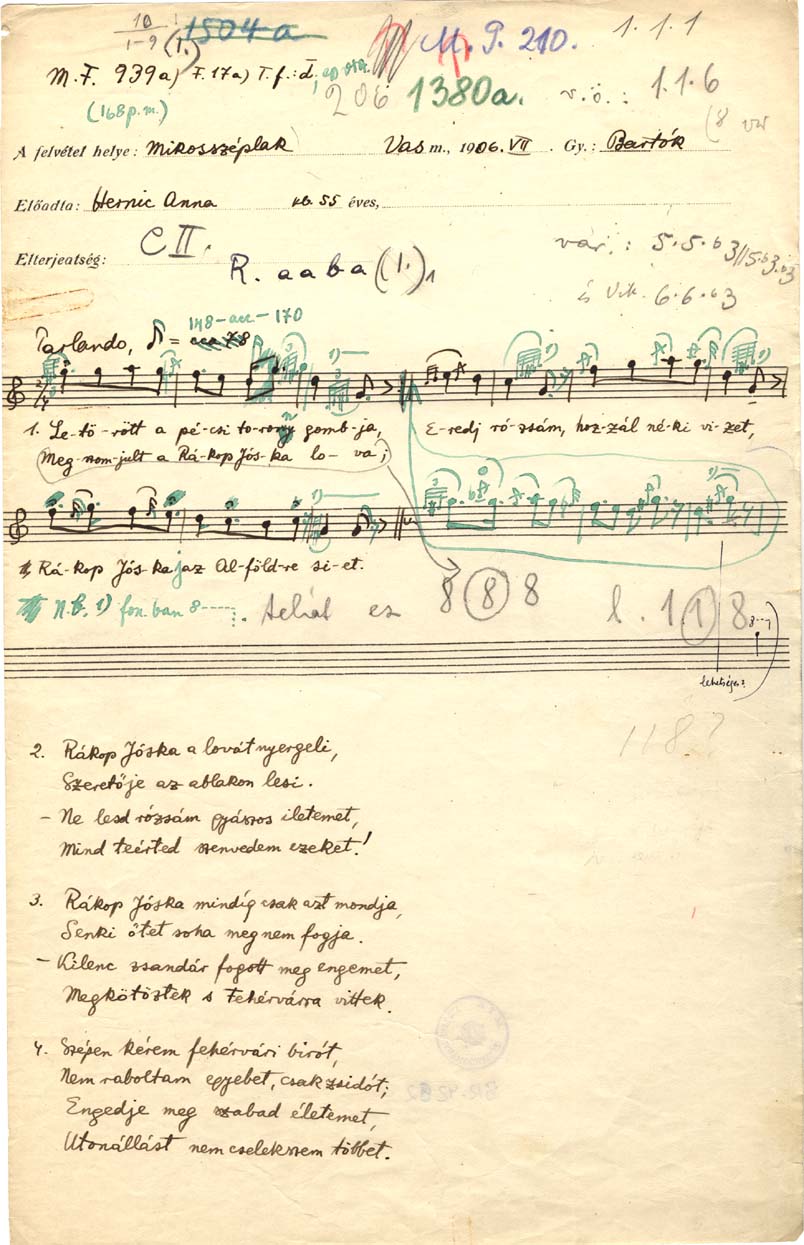 10
1-9 (1.) 1504 a M. P. 210. 1.1.1
M. F. 939a) F. 17a) T. f.: d,
(168 p.m.) 206 1380a. v.ö.: 1.1.6
(8
A felvétel helye: Mikosszéplak Vas m., 1906. VII. Gy.: Bartók
Előadta: Hernic Anna kb. 55 éves,
Elterjeatség: C II. vár.: 5.5.b3//5.b3.b3
R. a a b a (1.)1 és Vik. 6.6.b3
148-acc-170
Parlando, ♪ = cca 78
1. Le-tö-rött a pé-csi to-rony gomb-ja, E-redj ró-zsám, hoz-zál né-ki vi-zet,
Meg-szom-jult a Rá-kop Jós-ka lo-va;
Rá-kop Jós-ka az Al-föld-re si-et.
N.b. 1) fon.ban 8----. tehát ez 8 8 8 l. 1. 1 8
8---
lehetséges?
118?
2. Rákop Jóska a lovát nyergeli,
Szeretője az ablakon lesi.
- Ne lesd rózsám gyászos életemet,
Mind teérted szenvedem ezeket!
3. Rákop Jóska mindíg csak azt mondja,
Senki ötet soha meg nem fogja.
- Kilenc zsandár fogott meg engemet,
Megkötöztek s Fehérvárra vittek.
4. Szépen kérem fehérvári birót,
Nem raboltam egyebet, csak zsidót;
Engedje meg szabad életemet,
Utonállást nem cselekszem többet.